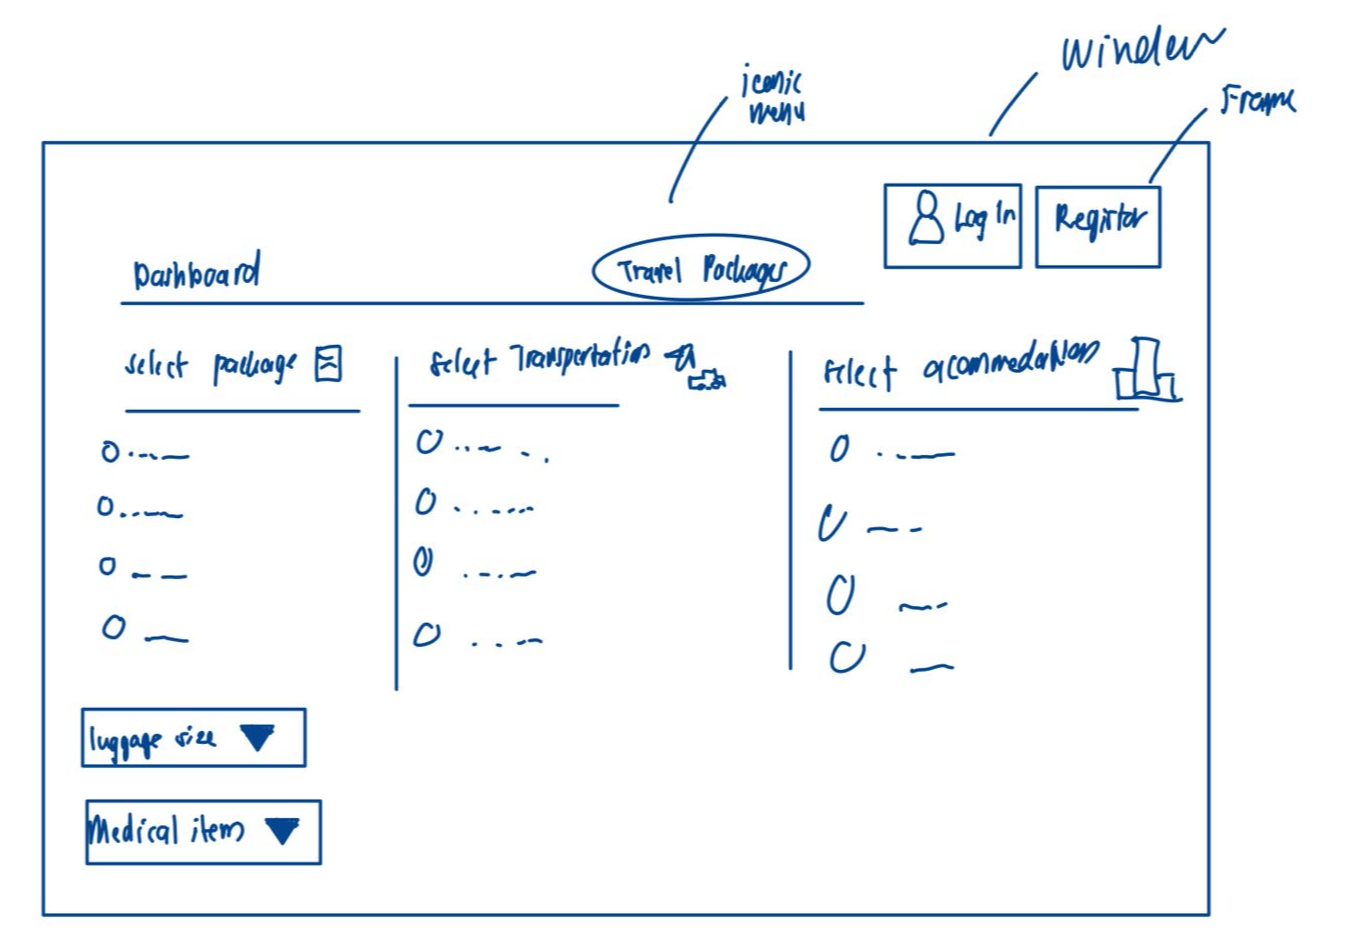 Window
iconic
menu
Frame
Log In
Register
Dashboard
Travel Packages
select package
select Transportation
select acommedations
luggage size
Medical item